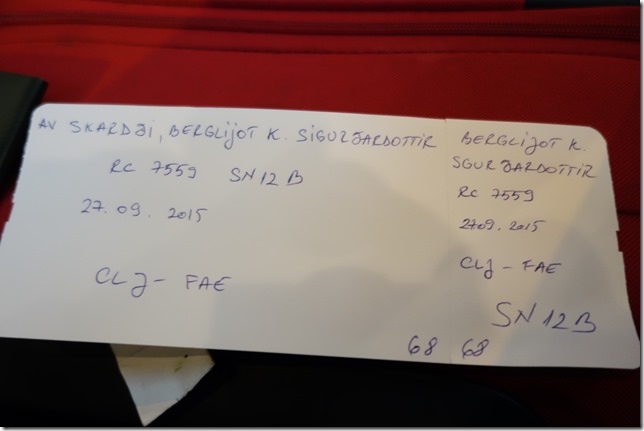 AV SKARDJI, BERGLIJOT K. SIGURJARDOTTIR
RC 7559 SN 12 B
27.09.2015
CLJ - FAE
BERGLIJOT K.
SGURJARDOTTIR
RC 7559
2709.2015
CLJ - FAE
SN 12 B
68 68